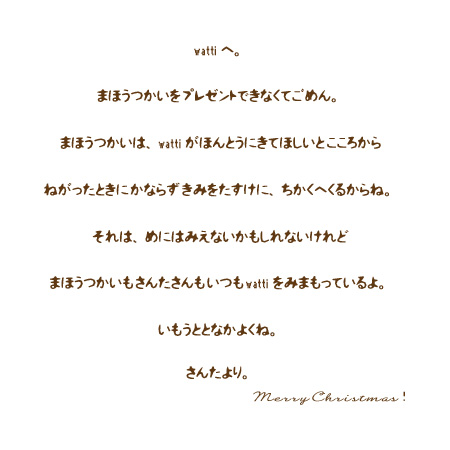 watti へ。
まほうつかいをプレゼントできなくてごめん。
まほうつかいは、watti がほんとうにきてほしいとこころから
ねがったときにかならずきみをたすけに、ちかくへくるからね。
それは、めにはみえないかもしれないけれど
まほうつかいもさんたさんもいつもwatti をみまもっているよ。
いもうととなかよくね。
さんたより。
Merry Christmas !